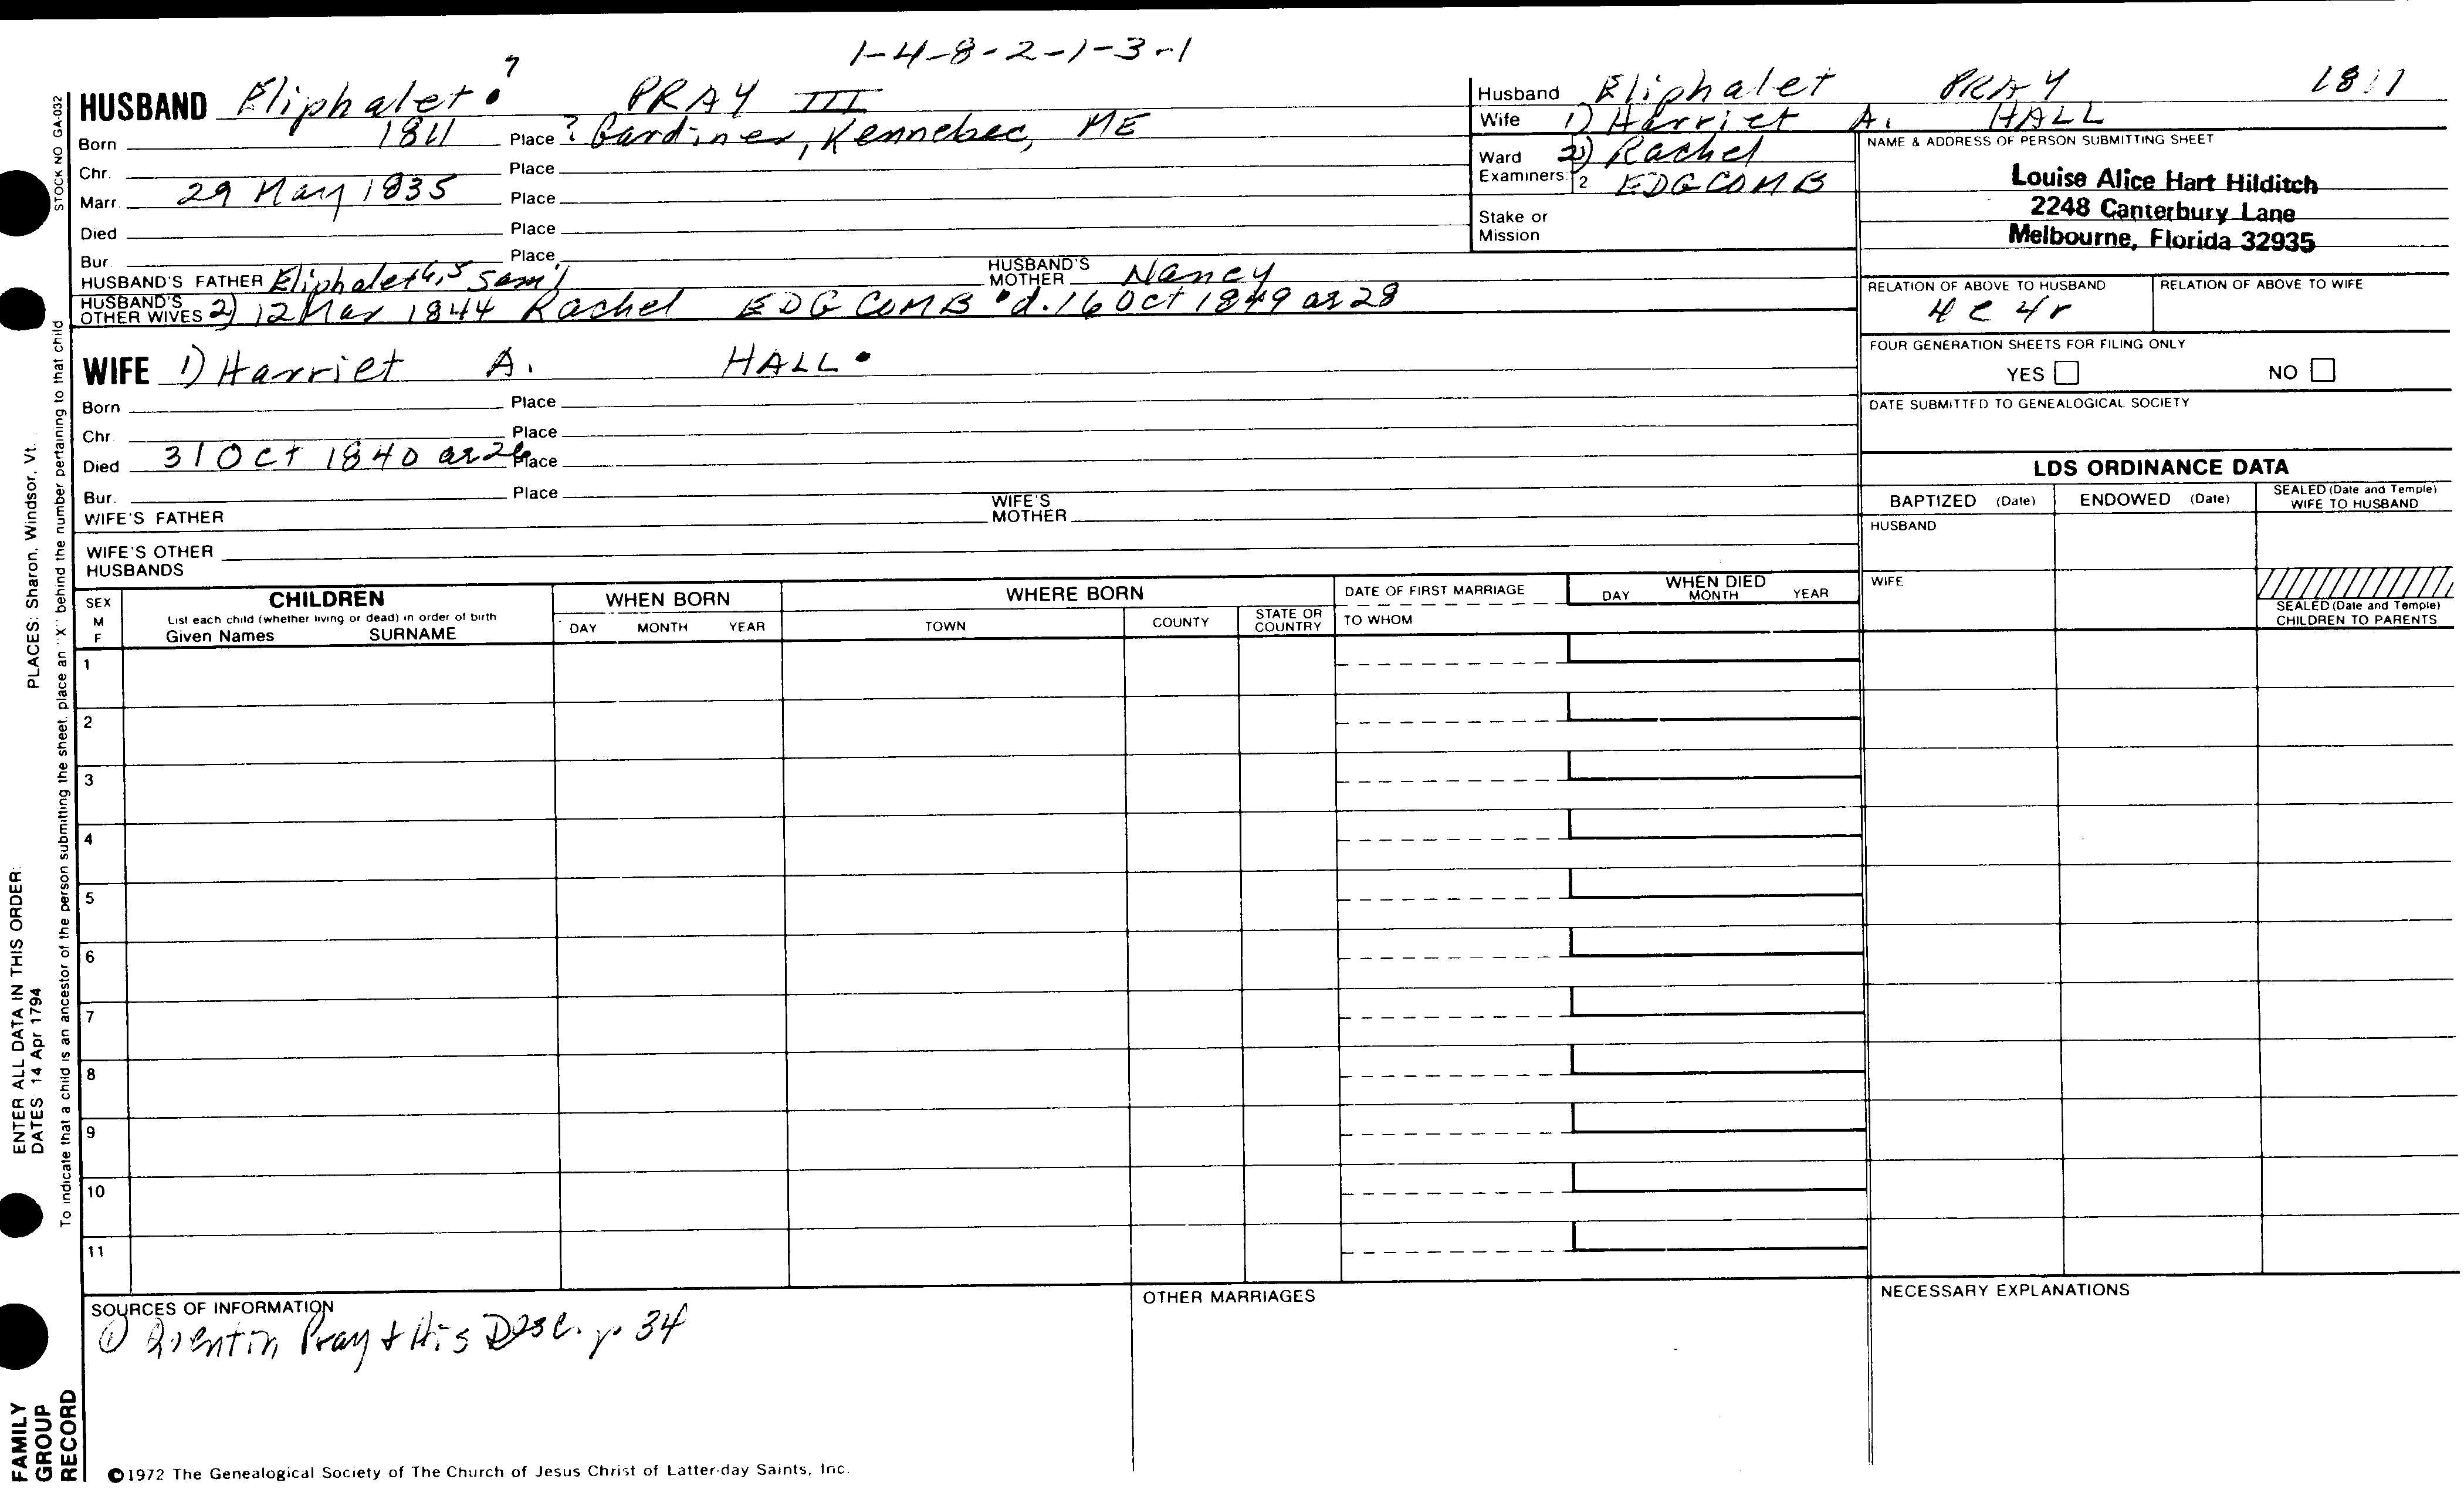 1-4-8-2-1-3-1
HUSBAND Eliphalet 7 PRAY III
Born 1811 Place ? Gardiner, Kennebec, ME
Chr. Place
Marr. 29 May 1835 Place
Died Place
Bur. Place
HUSBAND'S FATHER Eliphalet 6, 5 Sam'l HUSBAND'S MOTHER Nancy
HUSBAND'S OTHER WIVES 2) 12 Mar 1844 Rachel EDGCOMB d. 16 Oct 1849 ae 28
WIFE 1) Harriet A. HALL
Born Place
Chr. Place
Died 31 Oct 1840 ae 26 Place
Bur. Place
WIFE'S FATHER WIFE'S MOTHER
WIFE'S OTHER HUSBANDS
Husband Eliphalet PRAY 1811
Wife 1) Harriet A. HALL
Ward 2) Rachel
Examiners: 2 EDGCOMB
Stake or Mission
NAME & ADDRESS OF PERSON SUBMITTING SHEET
Louise Alice Hart Hilditch
2248 Canterbury Lane
Melbourne, Florida 32935
RELATION OF ABOVE TO HUSBAND RELATION OF ABOVE TO WIFE
4 c 4 r
FOUR GENERATION SHEETS FOR FILING ONLY
YES NO
DATE SUBMITTED TO GENEALOGICAL SOCIETY
LDS ORDINANCE DATA
BAPTIZED (Date) ENDOWED (Date) SEALED (Date and Temple) WIFE TO HUSBAND
HUSBAND
WIFE
SEALED (Date and Temple) CHILDREN TO PARENTS
SEX M F
CHILDREN
List each child (whether living or dead) in order of birth
Given Names SURNAME
WHEN BORN
DAY MONTH YEAR
WHERE BORN
TOWN COUNTY STATE OR COUNTRY
DATE OF FIRST MARRIAGE
TO WHOM
WHEN DIED
DAY MONTH YEAR
1
2
3
4
5
6
7
8
9
10
11
SOURCES OF INFORMATION
① Quentin Pray & His Desc. p. 34
OTHER MARRIAGES
NECESSARY EXPLANATIONS
©1972 The Genealogical Society of The Church of Jesus Christ of Latter-day Saints, Inc.
STOCK NO GA-032
To indicate that a child is an ancestor of the person submitting the sheet, place an "X" behind the number pertaining to that child
ENTER ALL DATA IN THIS ORDER:
DATES: 14 Apr 1794
PLACES: Sharon, Windsor, Vt.
FAMILY
GROUP
RECORD